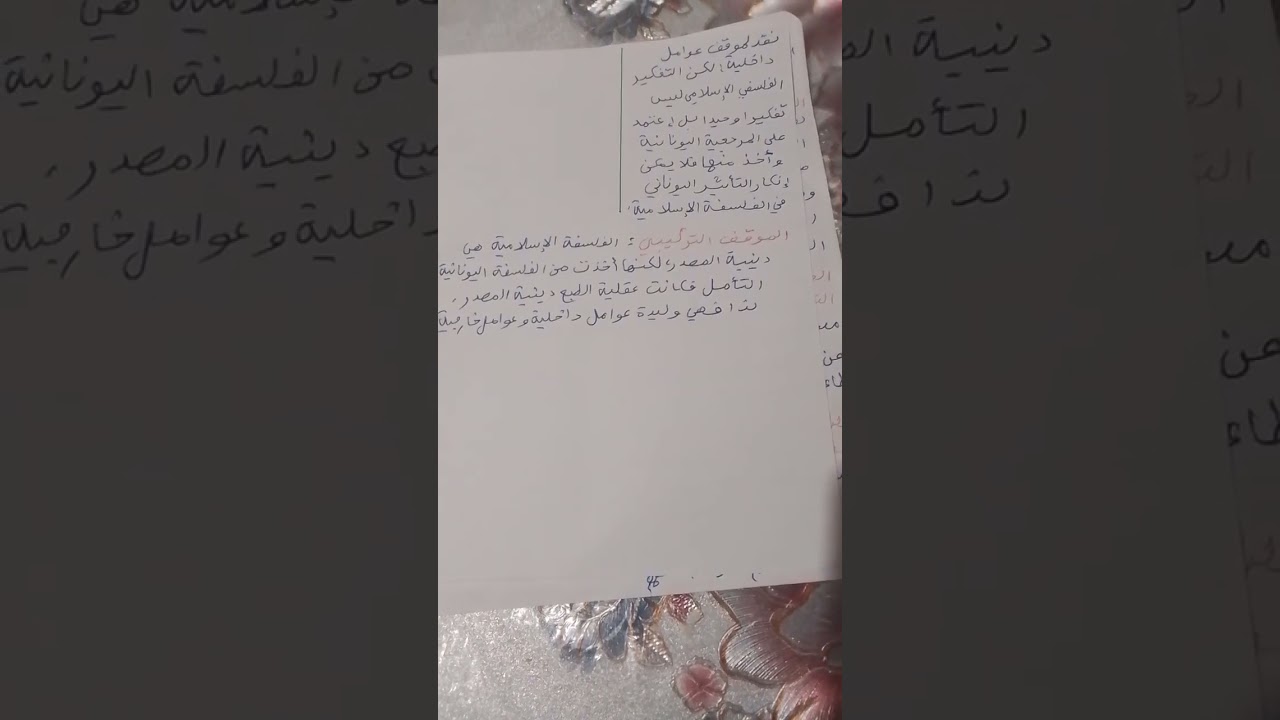 نقد لموقف عوامل
داخلية: لكن التفكير
الفلسفي الإسلامي ليس
تفكيرا وحيدا بل إعتمد
على المرجعية اليونانية
وأخذ منها فلا يمكن
إنكار التأثير اليوناني
في الفلسفة الإسلامية.
الموقف التركيبي: الفلسفة الإسلامية هي
دينية المصدر، لكنها أخذت من الفلسفة اليونانية
التأمل فكانت عقلية الطبع دينية المصدر،
لذا فهي وليدة عوامل داخلية وعوامل خارجية